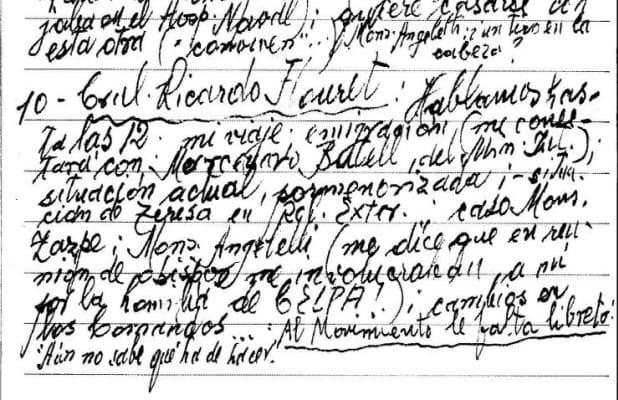 jaba en el Hosp. Naval); quiere casarse con
esta otra ("conviven"...) Mons. Angelelli: ¿un tiro en la
cabeza?
10 - Cnel. Ricardo Flouret: Hablamos has-
ta las 12. mi viaje emigración, (me conec-
tará con Batell, del Min. ); situa-
ción actual, pormenorizada; - situa-
ción de Teresa en Rel. Exter. ; caso Mons.
Zazpe; Mons. Angelelli (me dice que en reu-
nión de obispos me involucraban a mí
por la homilía de CELPA!); cambios en
los comandos ... : Al Movimiento le falta libreto:
"Aún no sabe qué ha de hacer".